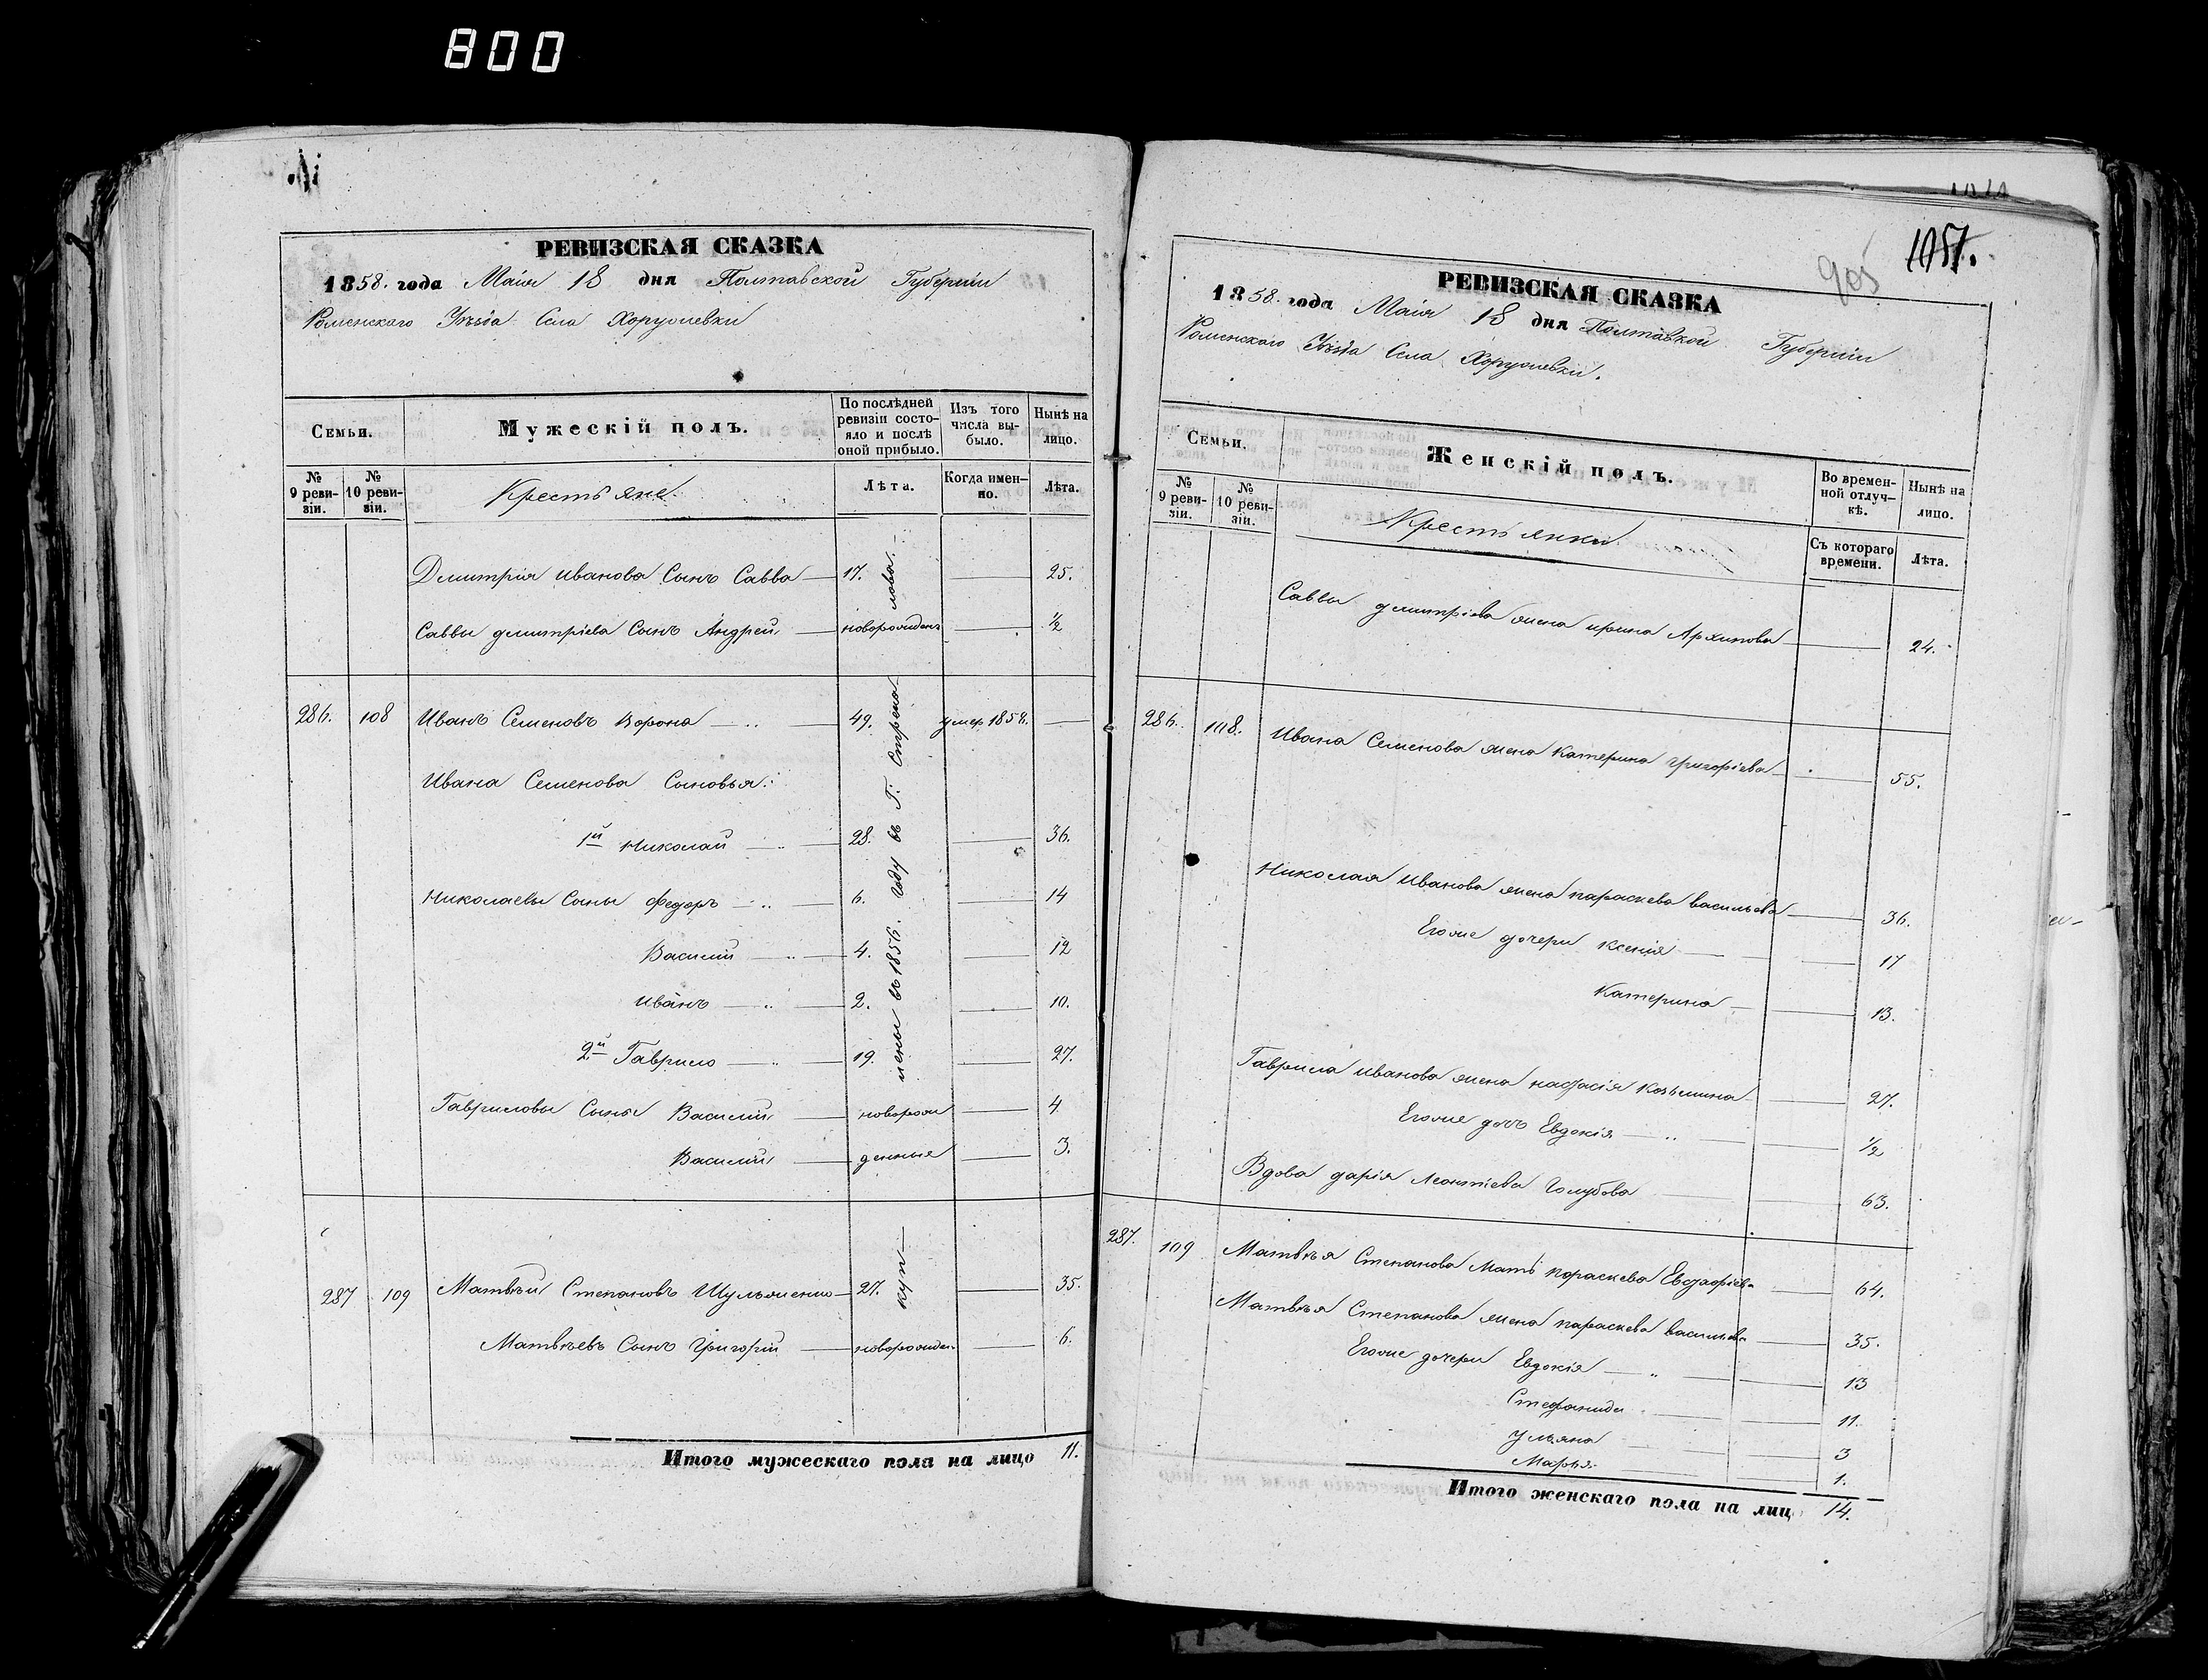 800
РЕВИЗСКАЯ СКАЗКА
1858. года Маія 18 дня Полтавской Губерніи
Роменскаго Уѣзда Села Хоружевки
Семьи.
Мужескій полъ.
По послѣдней ревизіи состояло и послѣ оной прибыло.
Изъ того числа выбыло.
Нынѣ на лицо.
№ 9 ревизіи.
№ 10 ревизіи.
Крестьяне.
Лѣта.
Когда именно.
Лѣта.
Дмитрія Иванова Сынъ Савва 17. 25.
Саввы дмитріева Сынъ Андрей новорожден 1/2
286. 108 Иванъ Семеновъ Ворона 49. умер 1858.
Ивана Семенова Сыновья:
1й Николай 28. 36.
Николаевы Сыны Федоръ 6. 14
Василий 4. 12
Иванъ 2. 10.
2й Гаврило 19. 27.
Гавриловы Сыны Василий новорож 4
Василий денныя 3.
287 109 Матвѣй Степановъ Шульженко 27. 35.
Матвѣевъ Сынъ Григорій новорожден. 6.
куплены въ 1856. году въ Г:
Итого мужескаго пола на лицо 11.
905
1051.
РЕВИЗСКАЯ СКАЗКА
1858. года Маія 18 дня Полтавкой Губерніи
Роменскаго Уѣзда Села Хоружевки.
Семьи.
Женскій полъ.
Во временной отлучкѣ.
Нынѣ на лицо.
№ 9 ревизіи.
№ 10 ревизіи.
Крестьянки
Съ котораго времени.
Лѣта.
Саввы дмитріева жена ирина Архипова 24.
286. 108. Ивана Семенова жена Катерина григоріева 55.
Николая Иванова жена параскева васильева 36.
Егоже дочери Ксенія 17
Катерина 13.
Гаврила Иванова жена настасія Козьмина 27.
Егоже дочь Евдокія 1/2
Вдова дарія Леонтіева Голубова 63.
287. 109 Матвѣя Степанова Мать параскева 64.
Матвѣя Степанова жена параскева васильева 35.
Егоже дочери Евдокія 13
Стефанида 11.
Ульяна 3
Марья 1.
Итого женскаго пола на лиц 14.